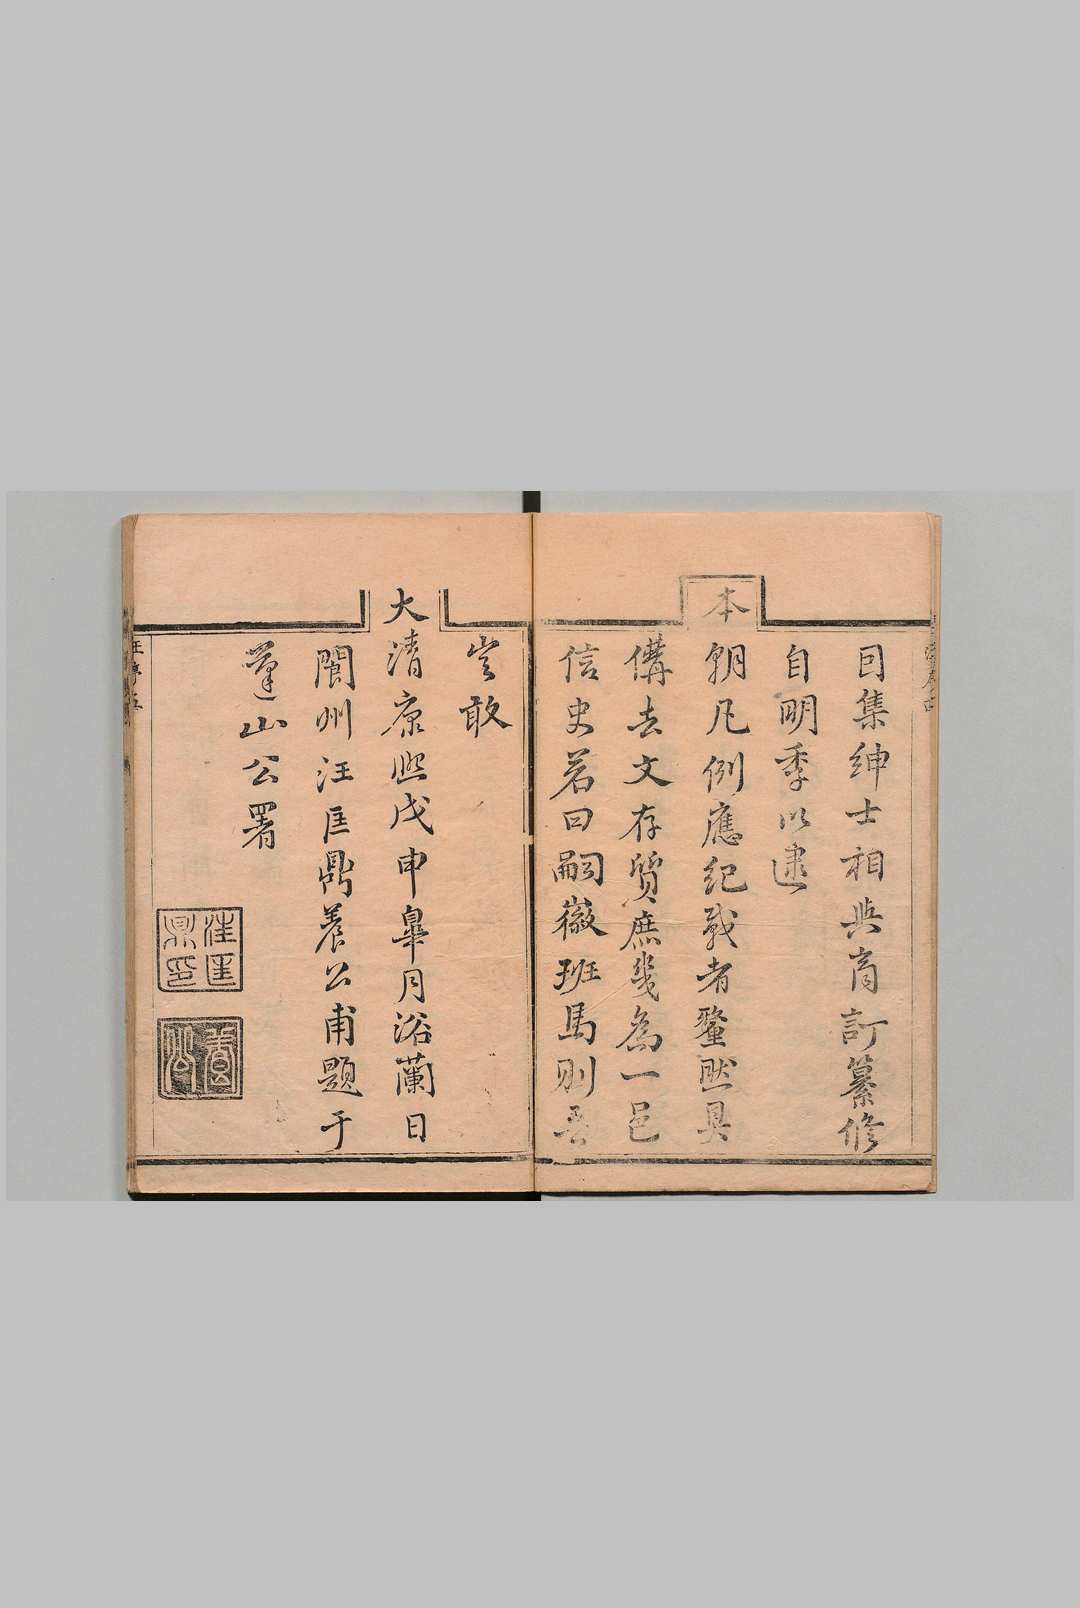 囙集紳士相與商訂纂修
自明季以逮
本朝凡例應紀載者釐然具
備去文存質庶幾為一邑
信史若曰嗣徽班馬則吾
豈敢
大清康熙戊申皐月浴蘭日
閬州汪匡鼎養公甫題于
蓬山公署
汪匡鼎印
養公